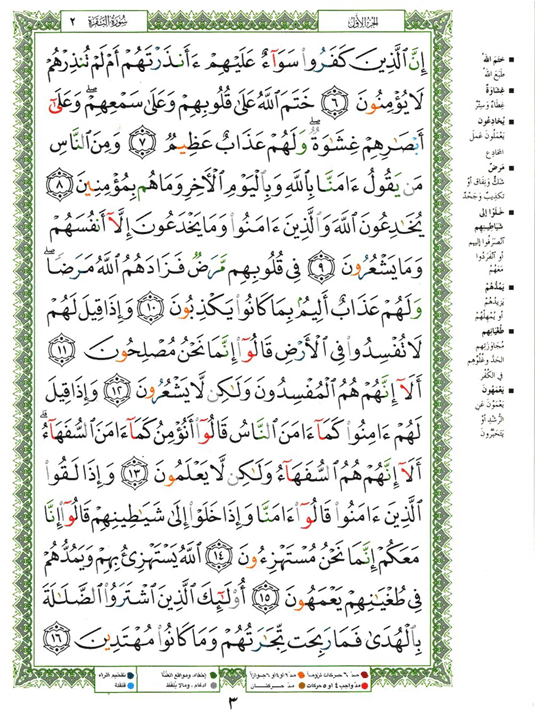 الجزء الأول
سورة البقرة ٢
إِنَّ ٱلَّذِينَ كَفَرُوا۟ سَوَآءٌ عَلَيْهِمْ ءَأَنذَرْتَهُمْ أَمْ لَمْ تُنذِرْهُمْ
لَا يُؤْمِنُونَ ٦ خَتَمَ ٱللَّهُ عَلَىٰ قُلُوبِهِمْ وَعَلَىٰ سَمْعِهِمْ ۖ وَعَلَىٰٓ
أَبْصَـٰرِهِمْ غِشَـٰوَةٌ ۖ وَلَهُمْ عَذَابٌ عَظِيمٌ ٧ وَمِنَ ٱلنَّاسِ
مَن يَقُولُ ءَامَنَّا بِٱللَّهِ وَبِٱلْيَوْمِ ٱلْـَٔاخِرِ وَمَا هُم بِمُؤْمِنِينَ ٨
يُخَـٰدِعُونَ ٱللَّهَ وَٱلَّذِينَ ءَامَنُوا۟ وَمَا يَخْدَعُونَ إِلَّآ أَنفُسَهُمْ
وَمَا يَشْعُرُونَ ٩ فِى قُلُوبِهِم مَّرَضٌ فَزَادَهُمُ ٱللَّهُ مَرَضًا ۖ
وَلَهُمْ عَذَابٌ أَلِيمٌۢ بِمَا كَانُوا۟ يَكْذِبُونَ ١٠ وَإِذَا قِيلَ لَهُمْ
لَا تُفْسِدُوا۟ فِى ٱلْأَرْضِ قَالُوٓا۟ إِنَّمَا نَحْنُ مُصْلِحُونَ ١١
أَلَآ إِنَّهُمْ هُمُ ٱلْمُفْسِدُونَ وَلَـٰكِن لَّا يَشْعُرُونَ ١٢ وَإِذَا قِيلَ
لَهُمْ ءَامِنُوا۟ كَمَآ ءَامَنَ ٱلنَّاسُ قَالُوٓا۟ أَنُؤْمِنُ كَمَآ ءَامَنَ ٱلسُّفَهَآءُ ۗ
أَلَآ إِنَّهُمْ هُمُ ٱلسُّفَهَآءُ وَلَـٰكِن لَّا يَعْلَمُونَ ١٣ وَإِذَا لَقُوا۟
ٱلَّذِينَ ءَامَنُوا۟ قَالُوٓا۟ ءَامَنَّا وَإِذَا خَلَوْا۟ إِلَىٰ شَيَـٰطِينِهِمْ قَالُوٓا۟ إِنَّا
مَعَكُمْ إِنَّمَا نَحْنُ مُسْتَهْزِءُونَ ١٤ ٱللَّهُ يَسْتَهْزِئُ بِهِمْ وَيَمُدُّهُمْ
فِى طُغْيَـٰنِهِمْ يَعْمَهُونَ ١٥ أُو۟لَـٰٓئِكَ ٱلَّذِينَ ٱشْتَرَوُا۟ ٱلضَّلَـٰلَةَ
بِٱلْهُدَىٰ فَمَا رَبِحَت تِّجَـٰرَتُهُمْ وَمَا كَانُوا۟ مُهْتَدِينَ ١٦
ختم الله
طبع الله
غشاوة
غطاء وستر
يخادعون
يعملون عمل
المخادع
مرض
شك ونفاق أو
تكذيب وجحد
خلوا إلى
شياطينهم
انصرفوا إليهم
أو انفردوا
معهم
يمدهم
يزيدهم
أو يمهلهم
طغيانهم
مجاوزتهم
الحد وغلوهم
في الكفر
يعمهون
يعمون عن
الرشد أو
يتحيرون
مد ٦ حركات لزوماً
مد ٢ أو ٤ أو ٦ جوازاً
إخفاء، ومواقع الغنة
تفخيم الراء
مد واجب ٤ أو ٥ حركات
مد حركتان
ادغام، وما لا يلفظ
قلقلة
٣